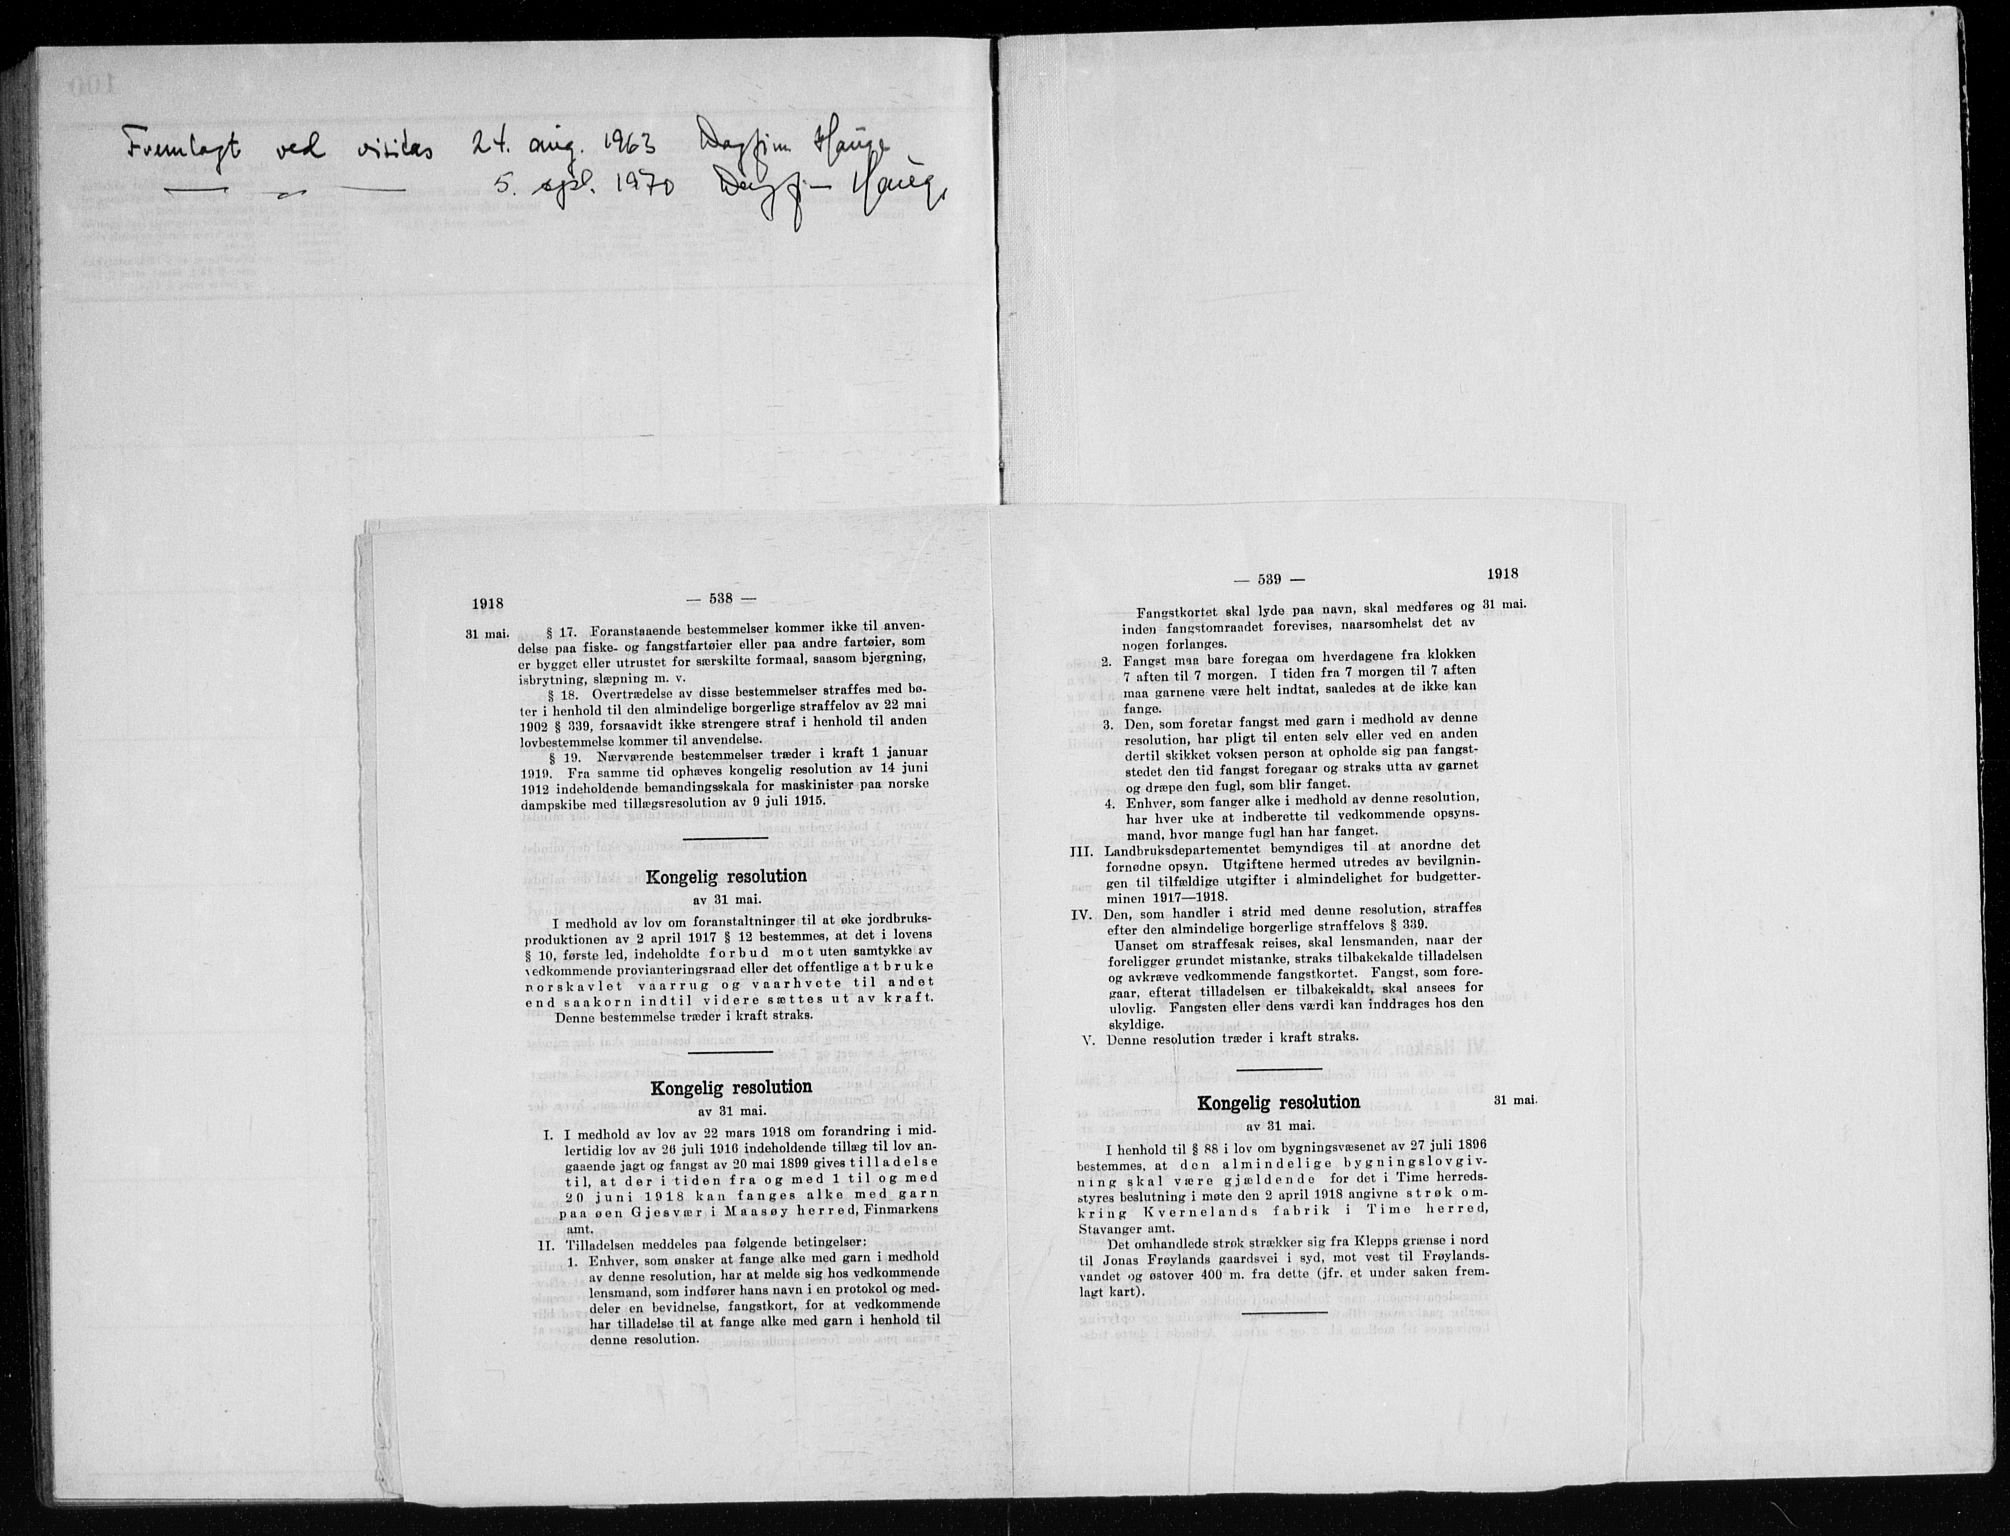 Fremlagt ved visitas 24. aug. 1963 Dagfinn Hauge
— " — 5. spt. 1970 Dagfinn Hauge
1918
— 538 —
31 mai.
§ 17. Foranstaaende bestemmelser kommer ikke til anven-
delse paa fiske- og fangstfartøier eller paa andre fartøier, som
er bygget eller utrustet for særskilte formaal, saasom bjergning,
isbrytning, slæpning m. v.
§ 18. Overtrædelse av disse bestemmelser straffes med bø-
ter i henhold til den almindelige borgerlige straffelov av 22 mai
1902 § 339, forsaavidt ikke strengere straf i henhold til anden
lovbestemmelse kommer til anvendelse.
§ 19. Nærværende bestemmelser træder i kraft 1 januar
1919. Fra samme tid ophæves kongelig resolution av 14 juni
1912 indeholdende bemandingsskala for maskinister paa norske
dampskibe med tillægsresolution av 9 juli 1915.
Kongelig resolution
av 31 mai.
I medhold av lov om foranstaltninger til at øke jordbruks-
produktionen av 2 april 1917 § 12 bestemmes, at det i lovens
§ 10, første led, indeholdte forbud mot uten samtykke av
vedkommende provianteringsraad eller det offentlige at bruke
norskavlet vaarrug og vaarhvete til andet
end saakorn indtil videre sættes ut av kraft.
Denne bestemmelse træder i kraft straks.
Kongelig resolution
av 31 mai.
I. I medhold av lov av 22 mars 1918 om forandring i mid-
lertidig lov av 26 juli 1916 indeholdende tillæg til lov an-
gaaende jagt og fangst av 20 mai 1899 gives tilladelse
til, at der i tiden fra og med 1 til og med
20 juni 1918 kan fanges alke med garn
paa øen Gjesvær i Maasøy herred, Finmarkens
amt.
II. Tilladelsen meddeles paa følgende betingelser:
1. Enhver, som ønsker at fange alke med garn i medhold
av denne resolution, har at melde sig hos vedkommende
lensmand, som indfører hans navn i en protokol og med-
deler en bevidnelse, fangstkort, for at vedkommende
har tilladelse til at fange alke med garn i henhold til
denne resolution.
— 539 —
1918
31 mai.
Fangstkortet skal lyde paa navn, skal medføres og
inden fangstomraadet forevises, naarsomhelst det av
nogen forlanges.
2. Fangst maa bare foregaa om hverdagene fra klokken
7 aften til 7 morgen. I tiden fra 7 morgen til 7 aften
maa garnene være helt indtat, saaledes at de ikke kan
fange.
3. Den, som foretar fangst med garn i medhold av denne
resolution, har pligt til enten selv eller ved en anden
dertil skikket voksen person at opholde sig paa fangst-
stedet den tid fangst foregaar og straks utta av garnet
og dræpe den fugl, som blir fanget.
4. Enhver, som fanger alke i medhold av denne resolution,
har hver uke at indberette til vedkommende opsyns-
mand, hvor mange fugl han har fanget.
III. Landbruksdepartementet bemyndiges til at anordne det
fornødne opsyn. Utgiftene hermed utredes av bevilgnin-
gen til tilfældige utgifter i almindelighet for budgetter-
minen 1917—1918.
IV. Den, som handler i strid med denne resolution, straffes
efter den almindelige borgerlige straffelovs § 339.
Uanset om straffesak reises, skal lensmanden, naar der
foreligger grundet mistanke, straks tilbakekalde tilladelsen
og avkræve vedkommende fangstkortet. Fangst, som fore-
gaar, efterat tilladelsen er tilbakekaldt, skal ansees for
ulovlig. Fangsten eller dens værdi kan inddrages hos den
skyldige.
V. Denne resolution træder i kraft straks.
Kongelig resolution
31 mai.
av 31 mai.
I henhold til § 88 i lov om bygningsvæsenet av 27 juli 1896
bestemmes, at den almindelige bygningslovgiv-
ning skal være gjældende for det i Time herreds-
styres beslutning i møte den 2 april 1918 angivne strøk om-
kring Kvernelands fabrik i Time herred,
Stavanger amt.
Det omhandlede strøk strækker sig fra Klepps grænse i nord
til Jonas Frøylands gaardsvei i syd, mot vest til Frøylands-
vandet og østover 400 m. fra dette (jfr. et under saken frem-
lagt kart).